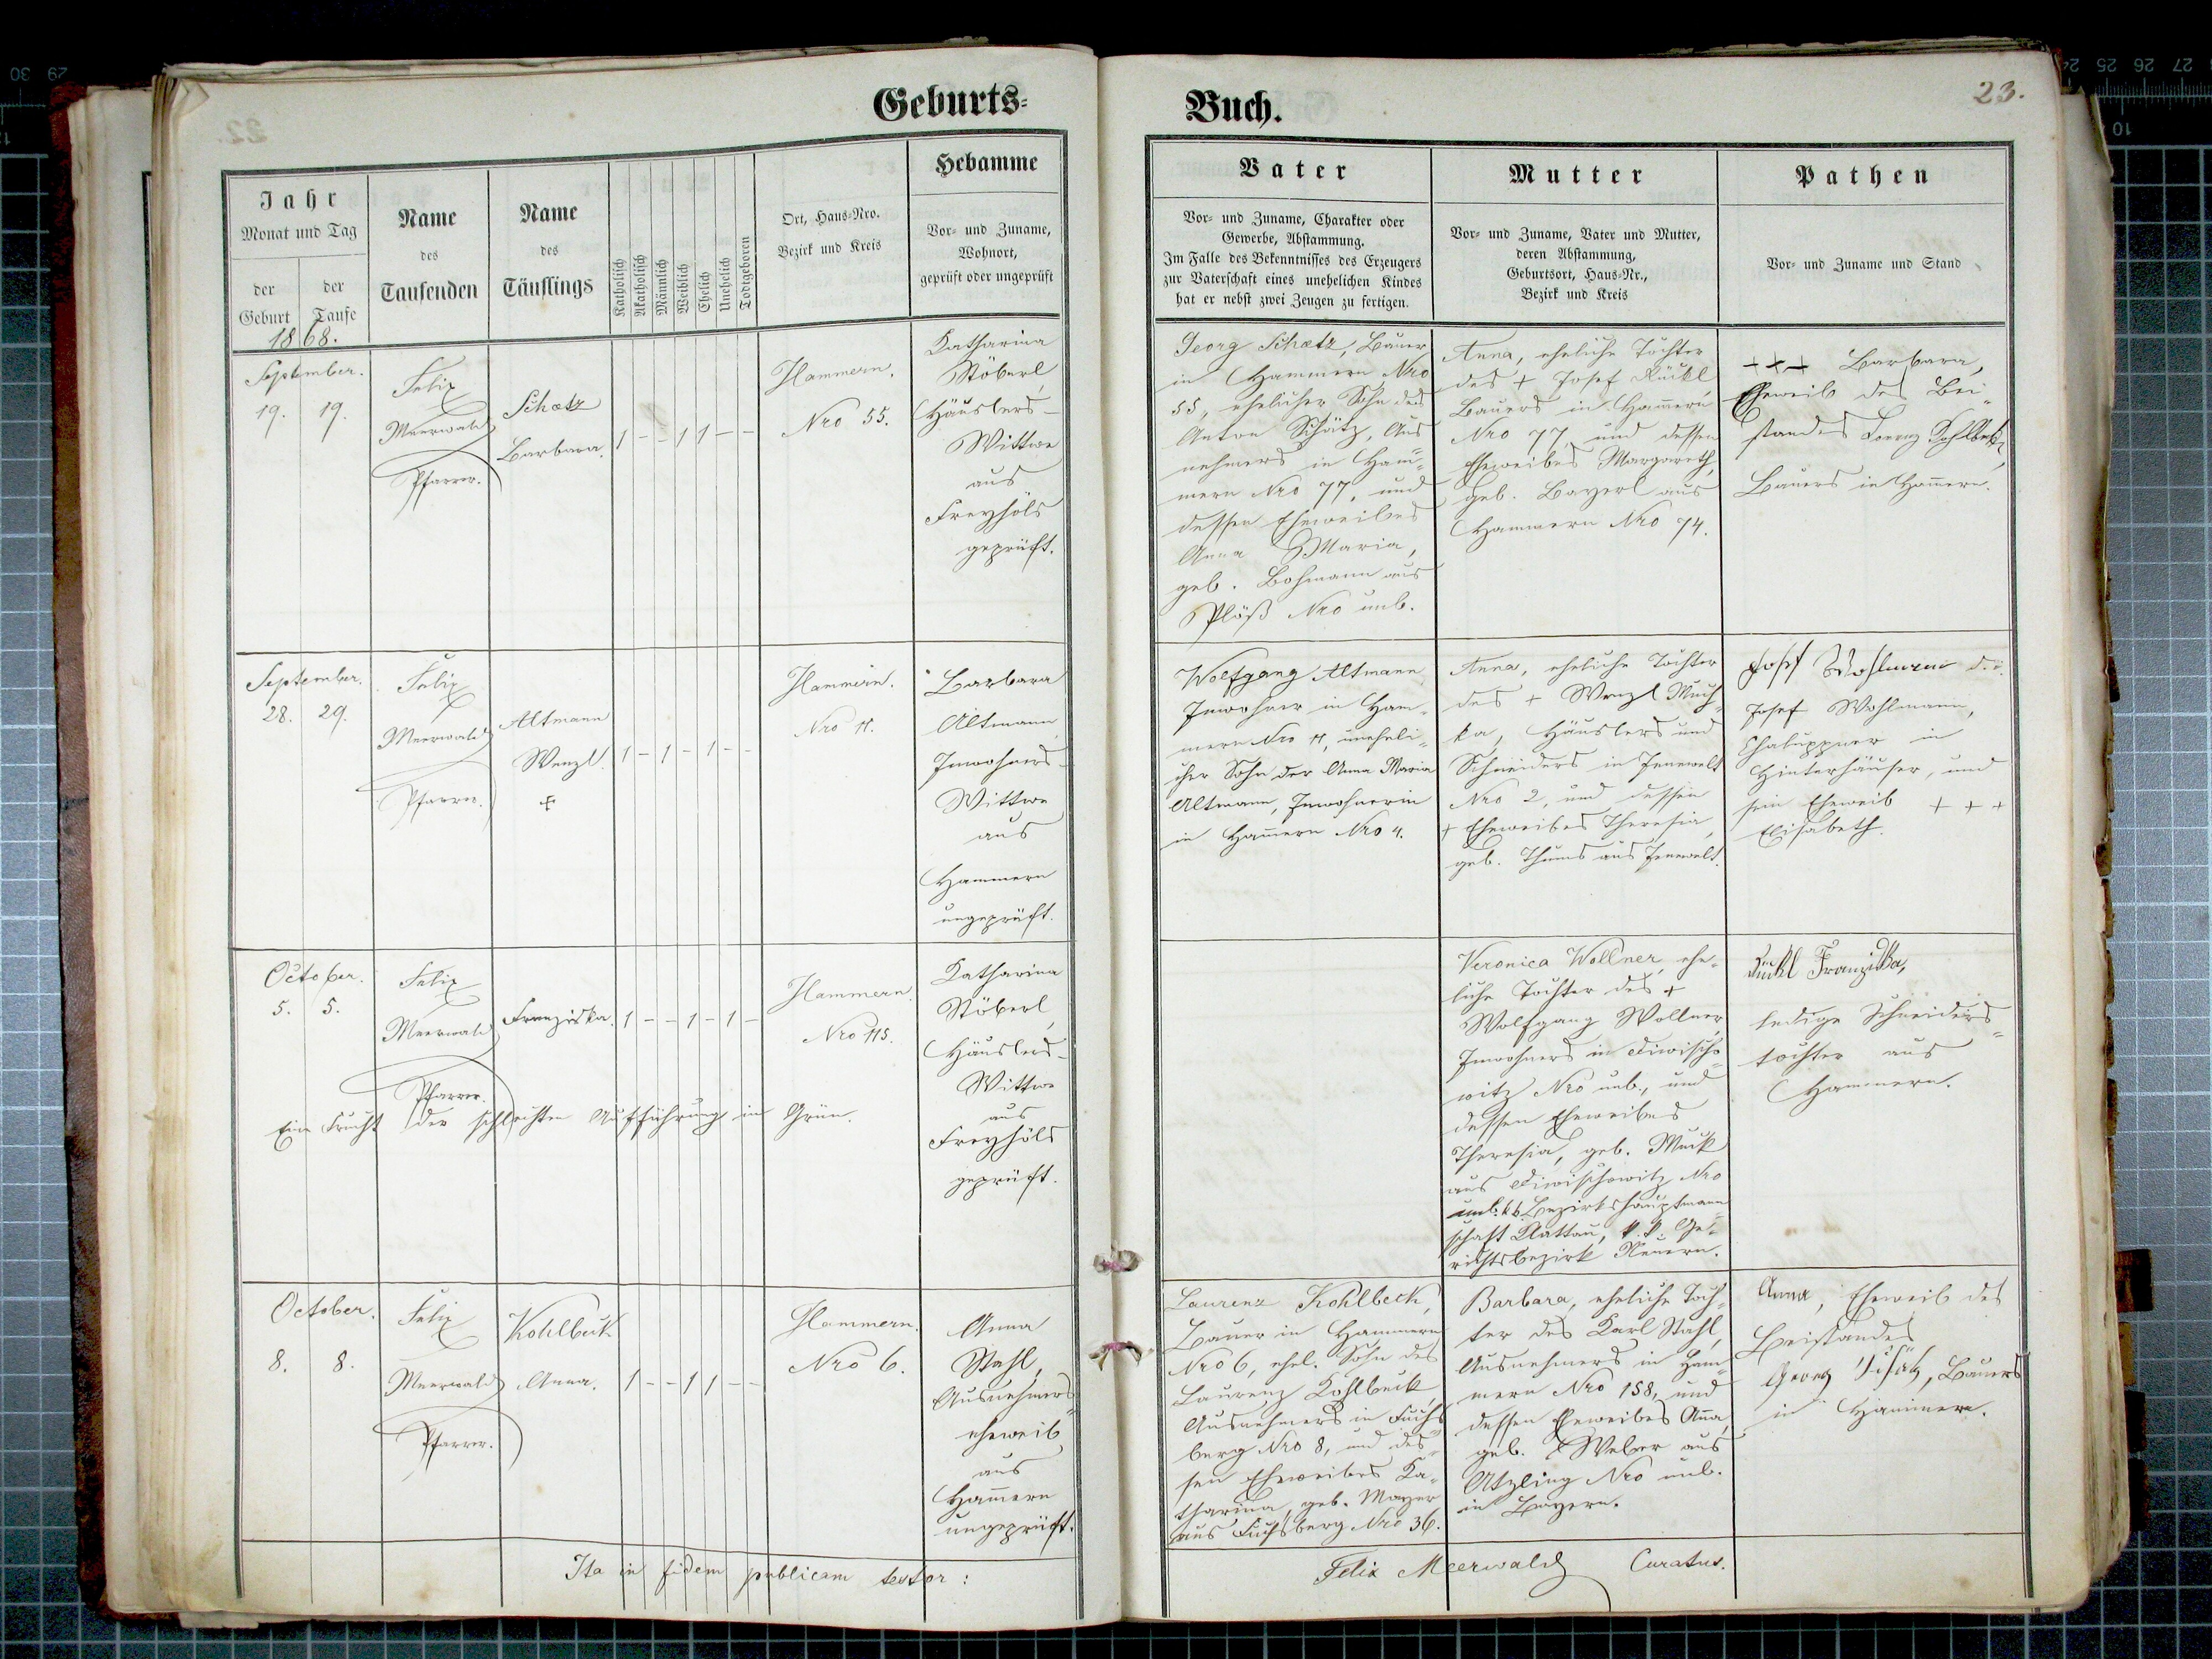 Geburts-
Buch.
23.
Jahr
Monat und Tag
der Geburt
der Taufe
Name
des
Taufenden
Name
des
Täuflings
Katholisch
Akatholisch
Männlich
Weiblich
Ehelich
Unehelich
Todtgeboren
Ort, Haus-Nro.
Bezirk und Kreis
Hebamme
Vor- und Zuname,
Wohnort,
geprüft oder ungeprüft
Vater
Vor- und Zuname, Charakter oder
Gewerbe, Abstammung.
Im Falle des Bekenntnisses des Erzeugers
zur Vaterschaft eines unehelichen Kindes
hat er nebst zwei Zeugen zu fertigen.
Mutter
Vor- und Zuname, Vater und Mutter,
deren Abstammung,
Geburtsort, Haus-Nr.,
Bezirk und Kreis
Pathen
Vor- und Zuname und Stand
1868.
September.
19. 19.
Felix
Meerwald
Pfarrer.
Schatz
Barbara.
1 - - 1 1 - -
Hammern.
Nro 55.
Katharina
Stöberl,
Häuslers-
Wittwe
aus
Freyhöls
geprüft.
Georg Schatz, Bauer
in Hammern Nro
55, ehelicher Sohn des
Anton Schätz, Aus
nehmers in Ham-
mern Nro 77, und
dessen Eheweibes
Anna Maria,
geb. Bohmann aus
Plöß Nro unb.
Anna, eheliche Tochter
des + Josef Rückl
Bauers in Ham̅ern
Nro 77, und dessen
Eheweibes Margareth,
geb. Bayerl aus
Hammern Nro 74.
+++ Barbara,
Eheweib des Bei-
standes Lorenz Kohlbek,
Bauers in Ham̅ern.
September.
28. 29.
Felix
Meerwald
Pfarrer.
Altmann
Wenzl.
+
1 - 1 - 1 - -
Hammern.
Nro 11.
Barbara
Altmann,
Inwohners-
Wittwe
aus
Hammern
ungeprüft.
Wolfgang Altmann
Inwohner in Ham-
mern Nro 11, uneheli-
cher Sohn der Anna Maria
Altmann, Inwohnerin
in Ham̅ern Nro 4.
Anna, eheliche Tochter
des + Wenzl Much-
ka, Häuslers und
Schneiders in Jenewelt
Nro 2, und dessen
+ Eheweibes Theresia,
geb. Thums aus Jenewelt.
Josef Wohlmann
Josef Wohlmann,
Chaluppner in
Hinterhäuser, und
sein Eheweib + + +
Elisabeth.
October.
5. 5.
Felix
Meerwald
Pfarrer.
Franziska.
1 - - 1 - 1 -
Hammern.
Nro 115.
Katharina
Stöberl,
Häuslers-
Wittwe
aus
Freyhöls
geprüft.
Eine Frucht der schlechten Aufführung in Grün.
Veronica Wollner, ehe-
liche Tochter des +
Wolfgang Wollner,
Inwohners in Diwischo-
witz Nro unb., und
dessen Eheweibes
Theresia, geb. Muck
aus Diwischowitz Nro
unb. k.k. Bezirkshauptmann
schaft Klattau, k.k. Ge-
richtsbezirk Neuern.
Rückl Franziska,
ledige Schneiders-
tochter aus
Hammern.
October.
8. 8.
Felix
Meerwald
Pfarrer.
Kohlbeck
Anna.
1 - - 1 1 - -
Hammern.
Nro 6.
Anna
Stahl,
Ausnehmers-
eheweib
aus
Ham̅ern
ungeprüft.
Laurenz Kohlbeck,
Bauer in Hammern
Nro 6, ehel. Sohn des
Laurenz Kohlbeck
Ausnehmers in Fuchs
berg Nro 8, und des-
sen Eheweibes Ka-
tharina, geb. Mayer
aus Fuchsberg Nro 36.
Barbara, eheliche Toch-
ter des Karl Stahl,
Ausnehmers in Ham-
mern Nro 158, und
dessen Eheweibes An̅a,
geb. Weber aus
Atzling Nro unb.
in Bayern.
Anna, Eheweib des
Beistandes
Georg Schätz, Bauers
in Ham̅ern.
Ita in fidem publicam testor:
Felix Meerwald Curatus.